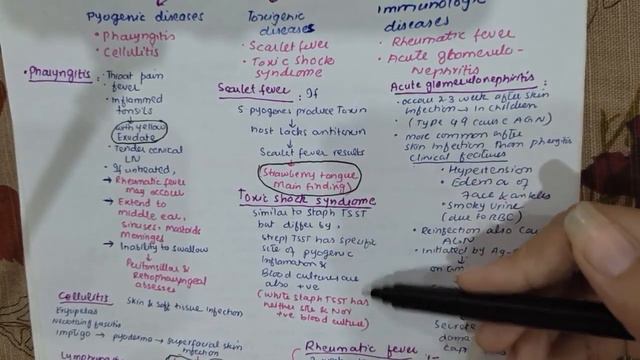 Pyogenic diseases
• Pharyngitis
• Cellulitis
• Pharyngitis :
• Throat pain
fever
• Inflammed
tonsils
with yellow
Exudate
• Tender cervical
LN
• If untreated,
→ Rheumatic fever
may occur
→ Extend to
middle ear,
sinuses, mastoids
meninges
→ Inability to swallow
Peritonsillar &
Retropharyngeal
absesses
Cellulitis
Erysipelas
Necrotising fascitis
Skin & Soft tissue infection
Impitigo → pyoderma → superfacial skin
infection
Toxigenic
diseases
• Scarlet fever
• Toxic shock
syndrome
Scarlet fever : If
S pyogenes produce Toxin
host lacks antitoxin
Scarlet fever results
Strawberry tongue
main finding)
Toxic shock syndrome
similar to staph TSST
but differ by,
strept TSST has specific
site of pyogenic
Inflamation &
Blood cultures are
also +ve
(white staph TSST has
neither site & nor
+ve blood culture)
Rheumatic fever
Immunologic
diseases
• Rheumatic fever
• Acute glomerulo-
nephritis
Acute glomerulonephritis :
• occurs 2-3 week after skin
infection → in children
• (Type 49 cause AGN)
• more common after
skin infection than
clinical features
• Hypertension
• Edema of
face & ankles
• Smoky urine
(due to RBC)
• Reinfection also
AGN
• Initiated by Ag-
on